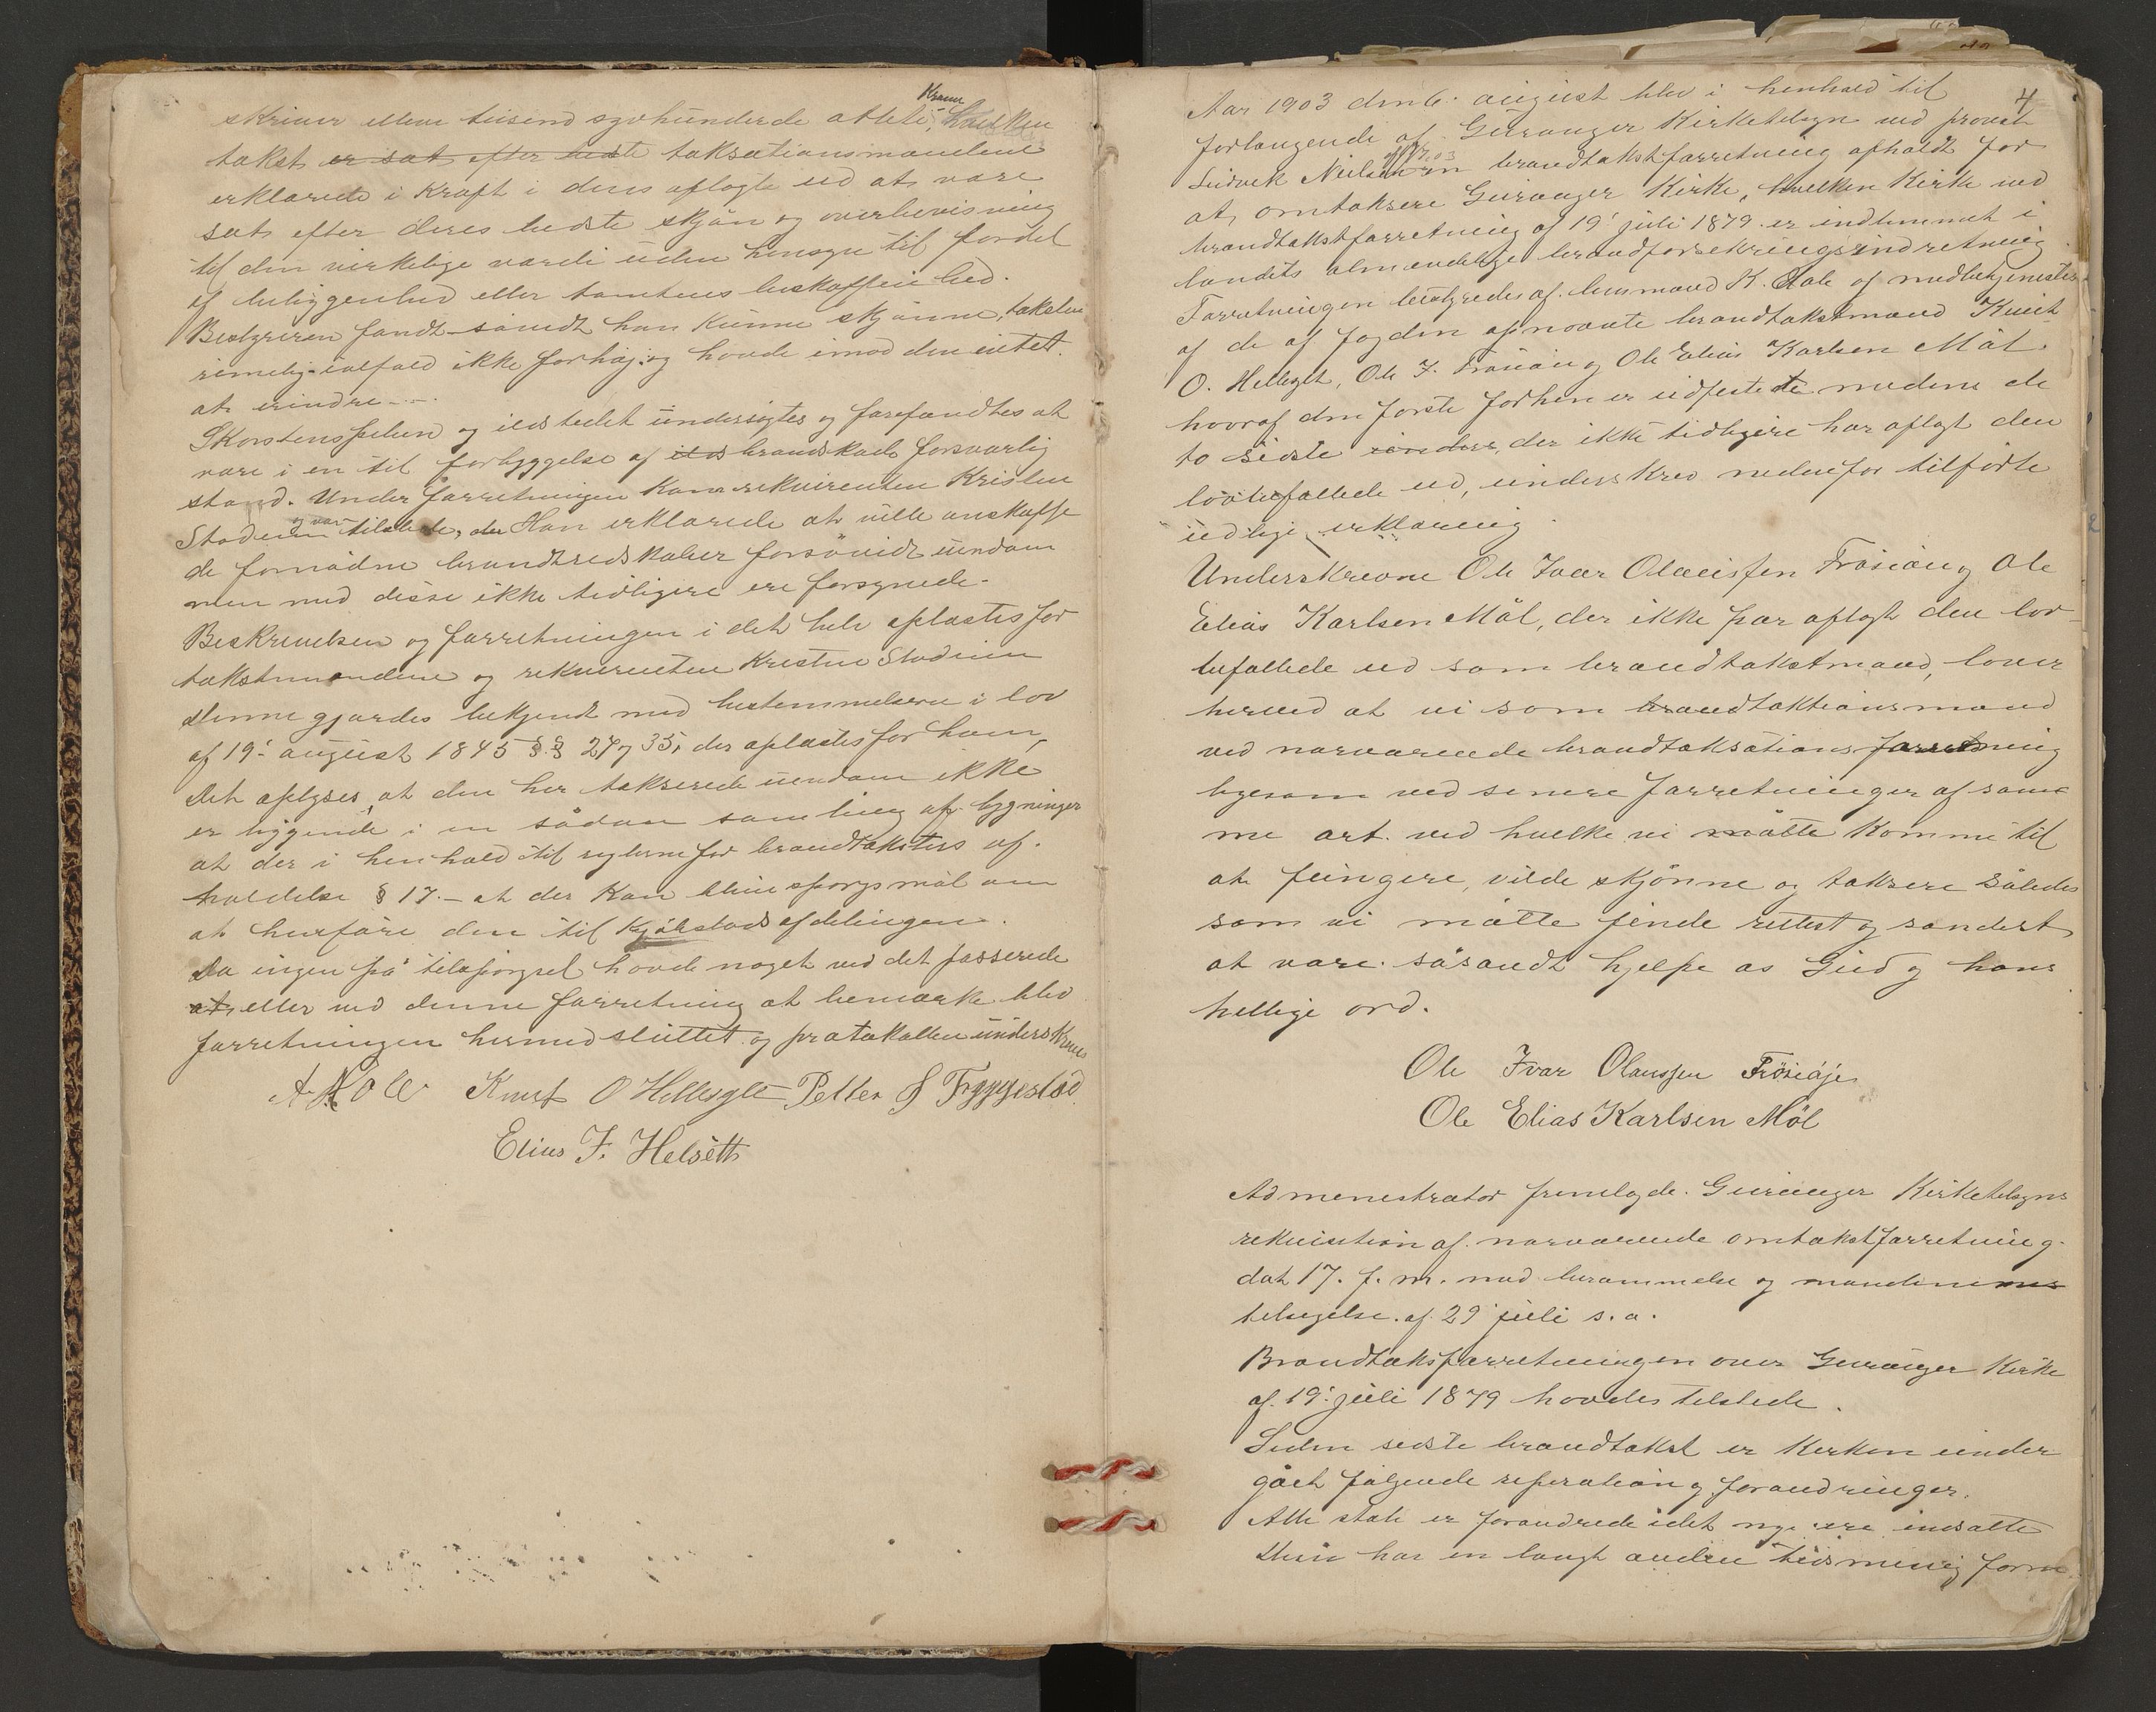 skriver elleve tusind syvhundrede ottete, Kroner hvilken
takst er sat efter bedste taksationsmændene
erklærede i kraft i deres aflagte ed at være
sat efter deres bedste skjøn og overbevisning
til den virkelige værdi uden hensyn til fordel
af beliggenhed eller tomtens beskaffenhed.
Bestyreren fandt såvidt han kunne skjønne, taksten
rimelig ialfald ikke forhøi og havde imod den intet
at erindre.
Skorstenspiben og ildstedet undersøgtes og forefandtes at
være i en til forbyggelse af ilds brandskade forsvarlig
stand. Under forretningen kom rekvirenten Kristen
Stadeim og var tilstede, der Han erklærede at ville anskaffe
de fornødne brandredskaber forsåvidt eiendom
men med disse ikke tidligere ere forsynede.
Beskrivelsen og forretningen i det hele oplæstes for
takstmændene og rekvirenten Kristen Stadeim
denne gjordes bekjendt med bestemmelserne i lov
af 19: august 1845 §.§ 27 og 35, der oplæstes for ham,
Det oplyses, at den her takserede eiendom ikke
er liggende i en sådan samling af bygninger
at der i henhold til reglerne for brandtaksters af-
holdelse § 17.- at der kan blive spørgsmål om
at henføre den til Kjøbstadsafdelingen.
Da ingen på tilspørgsel havde noget ved det passerede
at eller ved denne forretning at bemærke blev
forretningen hermed sluttet og protokollen underskreven
Knut O Hellesylt Petter J Tryggestad
Elias J. Helsett
4
Aar 1903 den 6. august blev i henhold til
forlangende af Geiranger Kirketilsyn ved provst
Ludvik Nielsen en brandtakstforretning afholdt for
at omtaksere Geiranger Kirke, hvilken Kirke ved
brandtakstforretning af 19' juli 1879 er indlemmet i
landets almendelige brandforsekringsindretning
Forretningen bestyredes af lensmand K. Hole og medbetjenester
af de af fogden opnævnte brandtakstmænd Knut
O. Hellesylt, Ole I. Frøisa og Ole Elias Karlsen Mål
hvoraf den første forhen er edfestede medens de
to sidste der ikke tidligere har aflagt den
lovbefallede ed, underskrev nedenfor tilførte
edlige erklæring
Underskrevne Ole Ivar Olaussen Frøisa og Ole
Elias Karlsen Mål, der ikke før aflagt den lov-
befallede ed som brandtakstmænd, lover
herved at vi som brandtaktionsmænd
ved nærværende brandtaksationsforretning
ligesom ved senere forretninger af sam-
me art. ved hvilke vi måtte komme til
at fungere, vilde skjønne og taksere således
som vi måtte finde rettest og sandest
at være. såsandt hjelpe os Gud og hans
hellige ord.
Ole Ivar Olaussen
Ole Elias Karlsen Möl
Admenistrator fremlagde. Geiranger Kirketilsyns
rekvisition af. nærværende omtakstforretning
dat 17. f. m. med berammelse og mændenes
tilsigelse. af 29 juli s. a.
Brandtakstforretningen over Geiranger Kirke
af. 19: juli 1879 havdes tilstede.
Siden sidste brandtakst er Kirken under
gået følgende reperation og forandringer.
Alle stole er forandrede idet nye ere indsatte
Disse har en langt anden tidsmæssig form